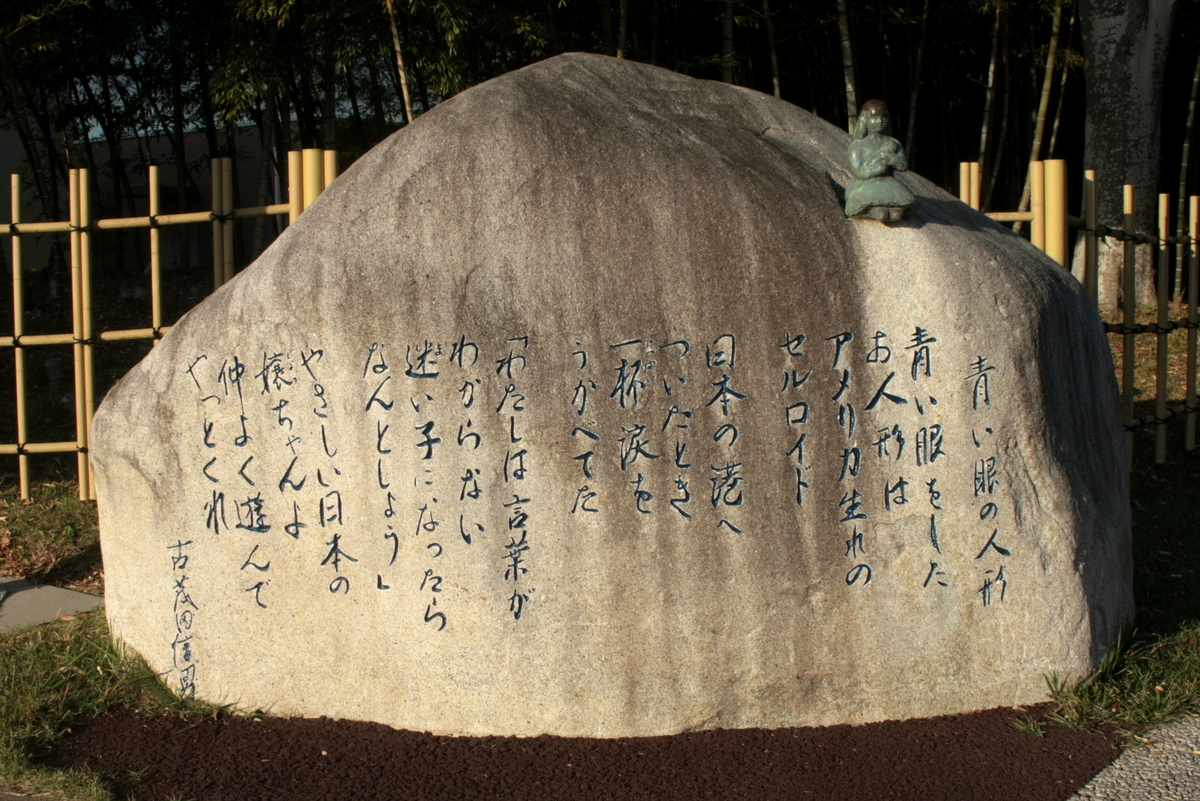 青い眼の人形
青い眼をした
お人形は
アメリカ生れの
セルロイド
日本の港へ
ついたとき
一杯涙を
うかべてた
「わたしは言葉が
わからない
迷い子になったら
なんとしょう」
やさしい日本の
嬢ちゃんよ
仲よく遊んで
やっとくれ
古茂田信男